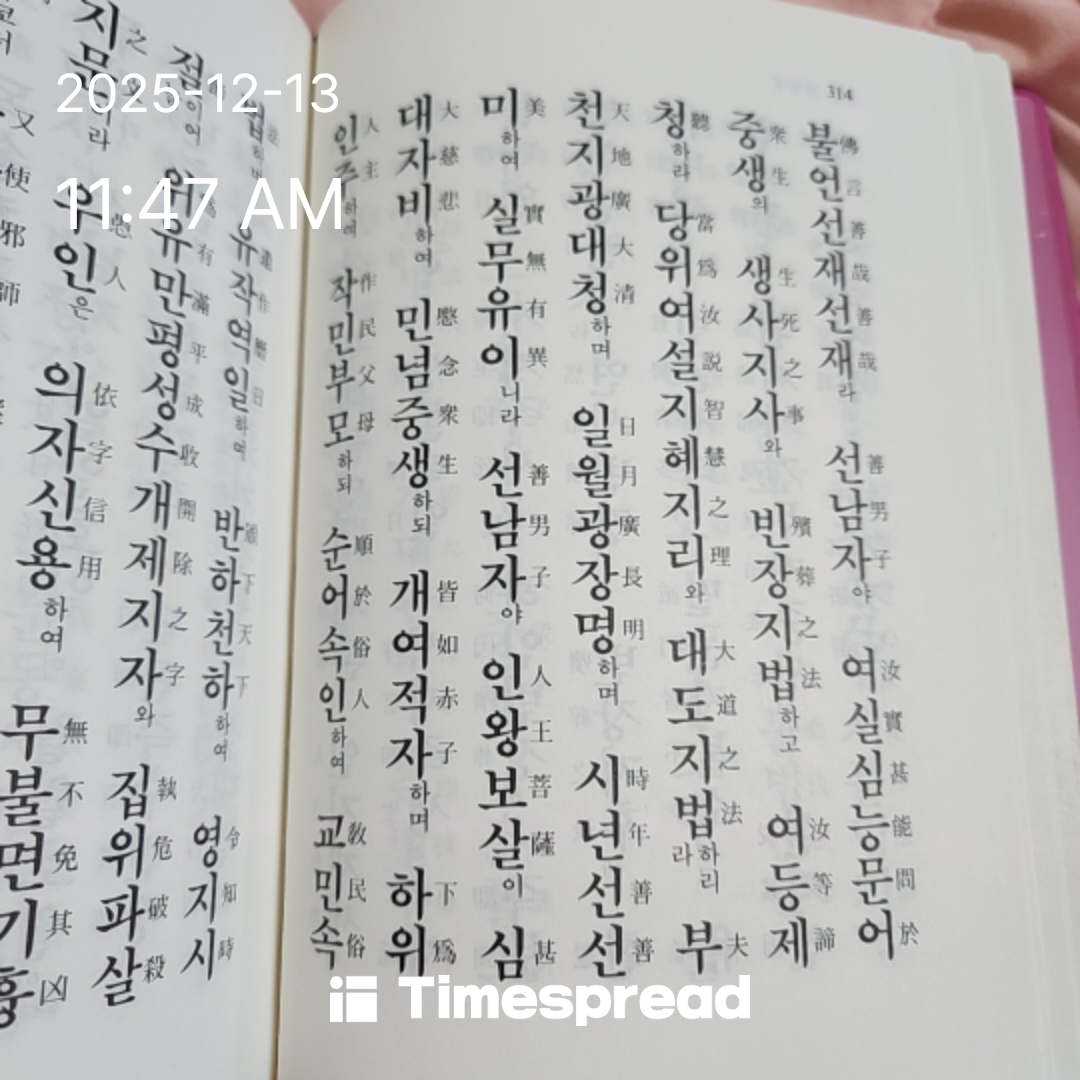 2025-12-13
11:47 AM
314
불언선재선재라 선남자야 여실심능문어
佛言善哉善哉 善男子 汝實甚能問於
중생의 생사지사와 빈장지법하고 여등제
衆生 生死之事 殯葬之法 汝等諦
청하라 당위여설지혜지리와 대도지법하리라 부
聽 當爲汝説智慧之理 大道之法 夫
천지광대청하며 일월광장명하며 시년선선
天地廣大清 日月廣長明 時年善善
미하여 실무유이니라 선남자야 인왕보살이 심
美 實無有異 善男子 人王菩薩 甚
대자비하여 민념중생하되 개여적자하며 하위
大慈悲 愍念衆生 皆如赤子 下爲
인주하여 작민부모하되 순어속인하여 교민속
人主 作民父母 順於俗人 敎民俗
유작역일하여 반하천하하여 영지시
下天下 令知時
유만평성수개제지자와 집위파살
有滿平成收開除之字 執危破殺
우인은 의자신용하여 무불면기흉
人 依字信用 無不免其凶
又使邪師
Timespread